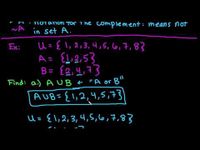 A' notation for the complement: means not
~A in set A.
Ex: U = {1,2,3,4,5,6,7,8}
A = {1,2,5}
B = {2,4,7}
Find: a) A∪B ← "A or B"
A∪B = {1,2,4,5,7}
U = {1,2,3,4,5,6,7,8}